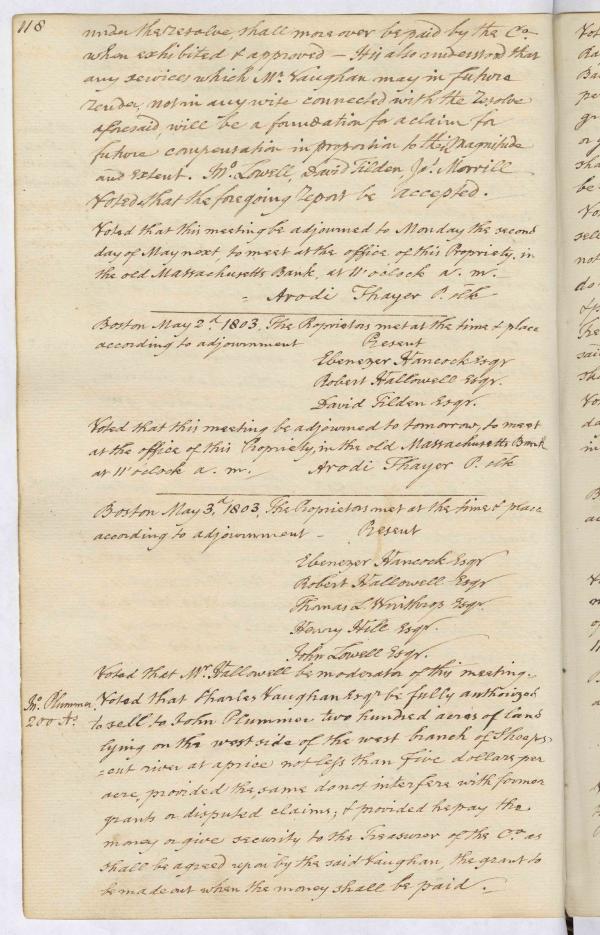 118
under the resolve, shall moreover be paid by the Co.
when exhibited & approved — It is also understood that
any services which Mr. Vaughan may in future
render, not in any wise connected with the resolve
aforesaid, will be a foundation for a claim for
future compensation in proportion to their magnitude
and extent. Jno. Lowell, David Tilden, Jos. Morrill
Voted, that the foregoing report be accepted.
Voted that this meeting be adjourned to Monday the second
day of May next, to meet at the office of this Propriety, in
the old Massachusetts Bank, at 11 o'clock a. m. —
Arodi Thayer P. Clk
Boston May 2d. 1803. The Proprietors met at the time & place
according to adjournment Present
Ebenezer Hancock Esqr
Robert Hallowell Esqr.
David Tilden Esqr.
Voted that this meeting be adjourned to tomorrow, to meet
at the office of this Propriety, in the old Massachusetts Bank
at 11 o'clock a. m. Arodi Thayer P. Clk
Boston May 3d. 1803. The Proprietors met at the time & place
according to adjournment — Present
Ebenezer Hancock Esqr
Robert Hallowell Esqr
Thomas L. Winthrop Esqr.
Henry Hill Esqr.
John Lowell Esqr.
Voted that Mr. Hallowell be moderator of this meeting.
Jno. Plummer
200 As.
Voted that Charles Vaughan Esqr be fully authorized
to sell to John Plummer two hundred acres of land
lying on the west side of the west branch of Sheeps-
=cut river at a price not less than five dollars per
acre, provided the same do not interfere with former
grants or disputed claims; & provided he pay the
money or give security to the Treasurer of the Co. as
shall be agreed upon by the said Vaughan, the grant to
be made out when the money shall be paid. —